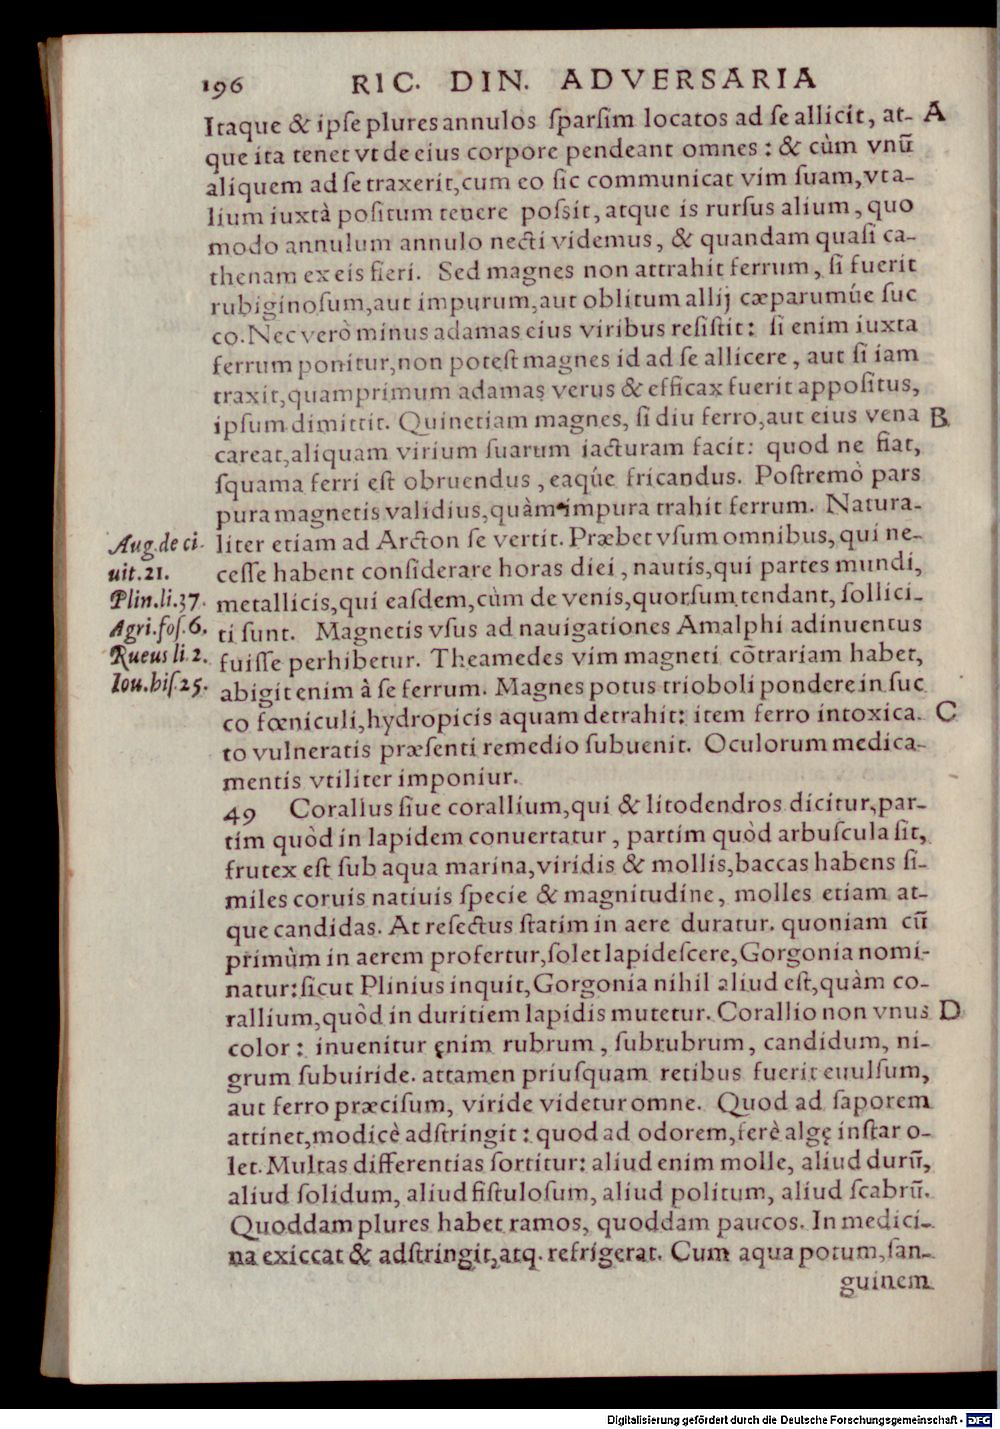 196 RIC. DIN. ADVERSARIA
Itaque & ipſe plures annulos ſparſim locatos ad ſe allicit, at- A
que ita tenet vt de eius corpore pendeant omnes: & cùm vnũ
aliquem ad ſe traxerit, cum eo ſic communicat vim ſuam, vt a-
lium iuxtà poſitum tenere poſsit, atque is rurſus alium, quo
modo annulum annulo necti videmus, & quandam quaſi ca-
thenam ex eis fieri. Sed magnes non attrahit ferrum, ſi fuerit
rubiginoſum, aut impurum, aut oblitum allij cæparumúe ſuc
co. Nec verò minus adamas eius viribus reſiſtit: ſi enim iuxta
ferrum ponitur, non poteſt magnes id ad ſe allicere, aut ſi iam
traxit, quamprimum adamas verus & efficax fuerit appoſitus,
ipſum dimittit. Quinetiam magnes, ſi diu ferro, aut eius vena B
careat, aliquam virium ſuarum iacturam facit: quod ne fiat,
ſquama ferri eſt obruendus, eaqúe fricandus. Poſtremò pars
pura magnetis validius, quàm impura trahit ferrum. Natura-
Aug. de ci- liter etiam ad Arcton ſe vertit. Præbet vſum omnibus, qui ne-
uit. 21. ceſſe habent conſiderare horas diei, nautis, qui partes mundi,
Plin. li. 37. metallicis, qui eaſdem, cùm de venis, quorſum tendant, ſollici-
Agri. foſ. 6. ti ſunt. Magnetis vſus ad nauigationes Amalphi adinuentus
Rueus li. 2. fuiſſe perhibetur. Theamedes vim magneti cõtrariam habet,
Iou. hiſ. 25. abigit enim à ſe ferrum. Magnes potus trioboli pondere in ſuc
co fœniculi, hydropicis aquam detrahit: item ferro intoxica- C
to vulneratis præſenti remedio ſubuenit. Oculorum medica-
mentis vtiliter imponiur.
49 Corallus ſiue corallium, qui & litodendros dicitur, par-
tim quòd in lapidem conuertatur, partim quòd arbuſcula ſit,
frutex eſt ſub aqua marina, viridis & mollis, baccas habens ſi-
miles coruis natiuis ſpecie & magnitudine, molles etiam at-
que candidas. At reſectus ſtatim in aere duratur. quoniam cũ
primùm in aerem profertur, ſolet lapideſcere, Gorgonia nomi-
natur: ſicut Plinius inquit, Gorgonia nihil aliud eſt, quàm co-
rallium, quòd in duritiem lapidis mutetur. Corallio non vnus D
color: inuenitur ęnim rubrum, ſubrubrum, candidum, ni-
grum ſubuiride. attamen priuſquam retibus fuerit euulſum,
aut ferro præciſum, viride videtur omne. Quod ad ſaporem
attinet, modicè adſtringit: quod ad odorem, ferè algę inſtar o-
let. Multas differentias ſortitur: aliud enim molle, aliud durũ,
aliud ſolidum, aliud fiſtuloſum, aliud politum, aliud ſcabrũ.
Quoddam plures habet ramos, quoddam paucos. In medici-
na exiccat & adſtringit, atq. refrigerat. Cum aqua potum, ſan-
guinem
Digitalisierung gefördert durch die Deutsche Forschungsgemeinschaft - DFG